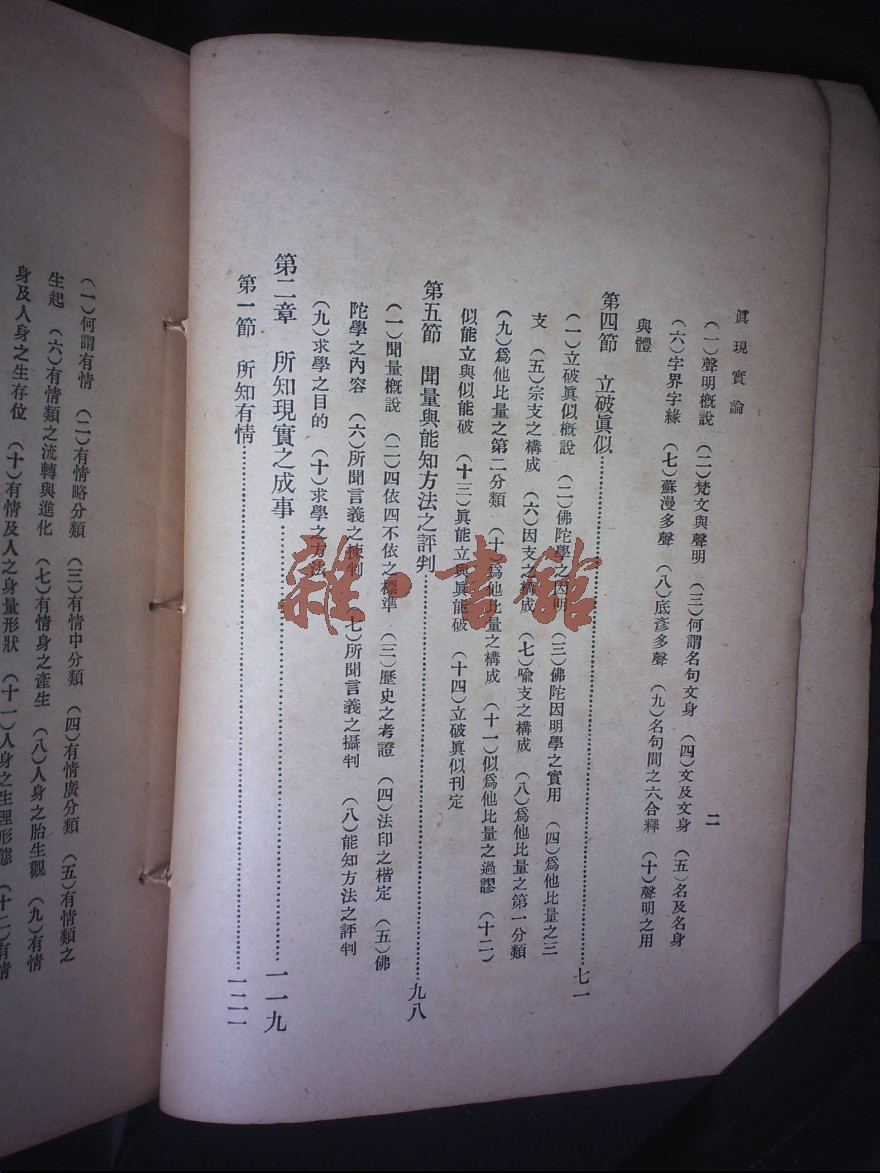 眞現實論
二
(一)聲明概說 (二)梵文與聲明 (三)何謂名句文身 (四)文及文身 (五)名及名身
(六)字界字緣 (七)蘇漫多聲 (八)底彥多聲 (九)名句間之六合釋 (十)聲明之用
與體
第四節 立破眞似……七一
(一)立破眞似概說 (二)佛陀學之因明 (三)佛陀因明學之實用 (四)爲他比量之三
支 (五)宗支之構成 (六)因支之構成 (七)喩支之構成 (八)爲他比量之第一分類
(九)爲他比量之第二分類 (十)爲他比量之構成 (十一)似爲他比量之過謬 (十二)
似能立與似能破 (十三)眞能立與眞能破 (十四)立破眞似刊定
第五節 聞量與能知方法之評判……九八
(一)聞量概說 (二)四依四不依之標準 (三)歷史之考證 (四)法印之楷定 (五)佛
陀學之內容 (六)所聞言義之揀判 (七)所聞言義之攝判 (八)能知方法之評判
(九)求學之目的 (十)求學之方法
第二章 所知現實之成事……一一九
第一節 所知有情……一二一
(一)何謂有情 (二)有情略分類 (三)有情中分類 (四)有情廣分類 (五)有情類之
生起 (六)有情類之流轉與進化 (七)有情身之產生 (八)人身之胎生觀 (九)有情
身及人身之生存位 (十)有情及人之身量形狀 (十一)人身之生理形態 (十二)有情
雜·書館